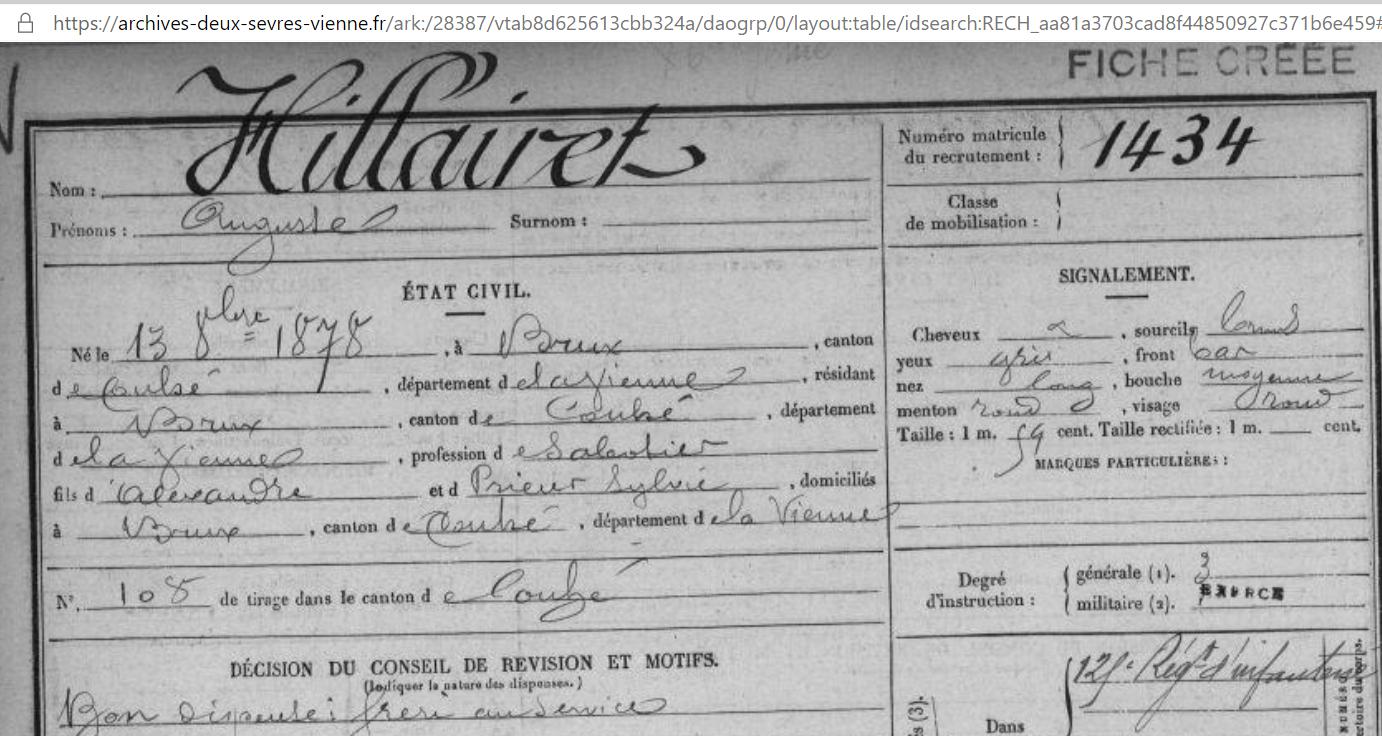 https://archives-deux-sevres-vienne.fr/ark:/28387/vtab8d625613cbb324a/daogrp/0/layout:table/idsearch:RECH_aa81a3703cad8f44850927c371b6e459#
FICHE CRÉÉE
Nom : Hillairet
Prénoms : Auguste Surnom :
Numéro matricule du recrutement : 1434
Classe de mobilisation :
ÉTAT CIVIL.
Né le 13 8bre 1878, à Brux, canton
de Couhé, département de la Vienne, résidant
à Brux, canton de Couhé, département
de la Vienne, profession de Sabotier
fils d'Alexandre et d Prieur Sylvie, domiciliés
à Brux, canton de Couhé, département de la Vienne
N° 108 de tirage dans le canton de Couhé
DÉCISION DU CONSEIL DE REVISION ET MOTIFS.
(Indiquer la nature des dispenses.)
Bon Dispensé : frère au service
SIGNALEMENT.
Cheveux et, sourcils bruns
yeux gris, front bas
nez long, bouche moyenne
menton rond, visage rond
Taille : 1 m. 59 cent. Taille rectifiée : 1 m. cent.
MARQUES PARTICULIÈRES :
Degré d'instruction : générale (1). 3
militaire (2). EXERCÉ
125e Régt d'infanterie
(3).
Dans
NUMÉRO